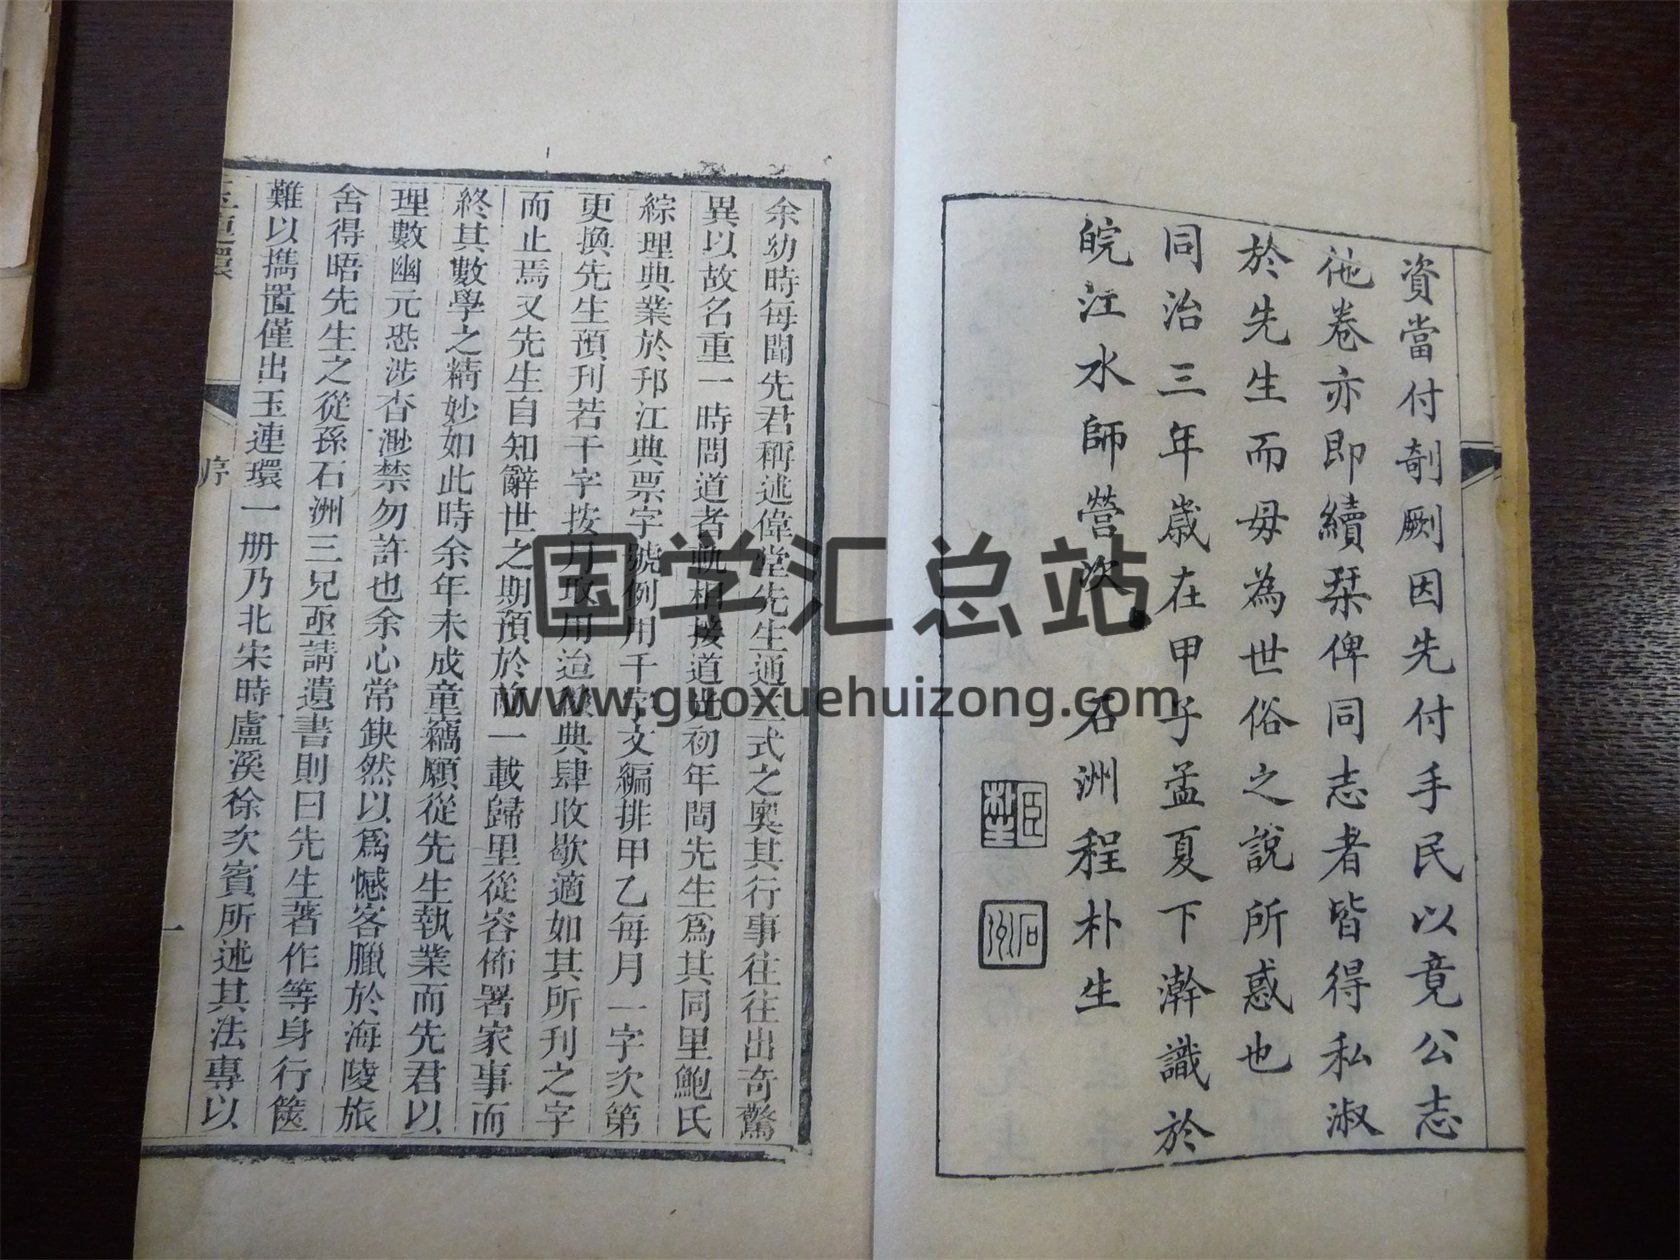 資當付剞劂因先付手民以竟公志
他卷亦即續栞俾同志者皆得私淑
於先生而毋為世俗之說所惑也
同治三年歲在甲子孟夏下澣識於
皖江水師營次 石洲程朴生
臣
石洲
余幼時每聞先君稱述偉堂先生通三式之奧其行事往往出奇驚
異以故名重一時問道者軌相接道光初年間先生爲其同里鮑氏
綜理典業於邗江典票字號例用千字文編排甲乙每月一字次第
更換先生預刊若干字按月取用迨後典肆收歇適如其所刊之字
而止焉又先生自知辭世之期預於前一載歸里從容佈署家事而
終其數學之精妙如此時余年未成童竊願從先生執業而先君以
理數幽元恐涉杳渺禁勿許也余心常缺然以爲憾客臘於海陵旅
舍得晤先生之從孫石洲三兄亟請遺書則曰先生著作等身行篋
難以攜置僅出玉連環一册乃北宋時盧溪徐次賓所述其法專以
玉連環
序
一
国学汇总站
www.guoxuehuizong.com